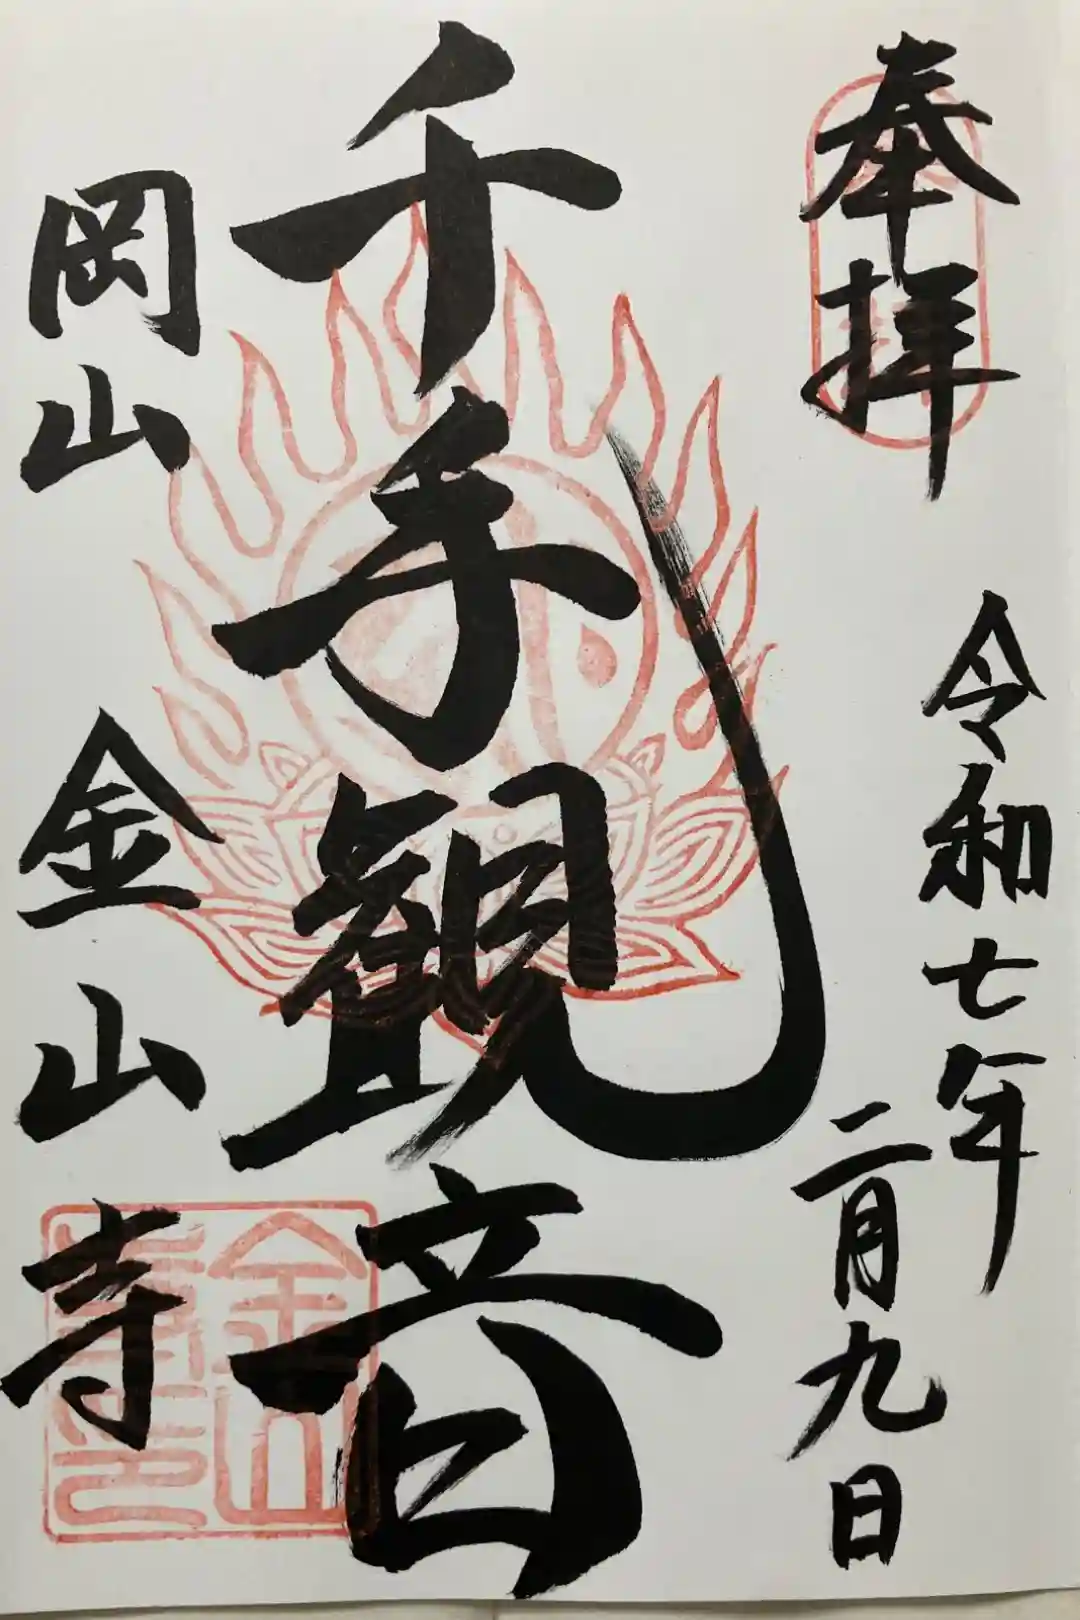 奉拝
令和七年
二月九日
千手観音
岡山
金山寺
金山
寺印